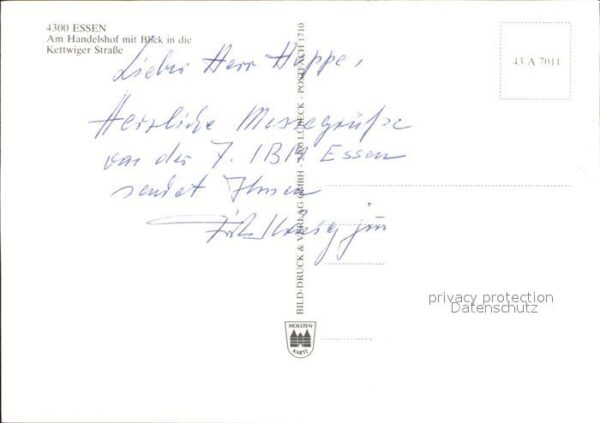 4300 ESSEN
Am Handelshof mit Blick in die
Kettwiger Straße
43 A 7011
Lieber Herr Hoppe,
Herzliche Messegrüße
von der 7. IBM Essen
sendet Ihnen
jun
BILD-DRUCK & VERLAG GMBH · 2400 LÜBECK · POSTFACH 1710
HOLSTEN
KARTE
privacy protection
Datenschutz